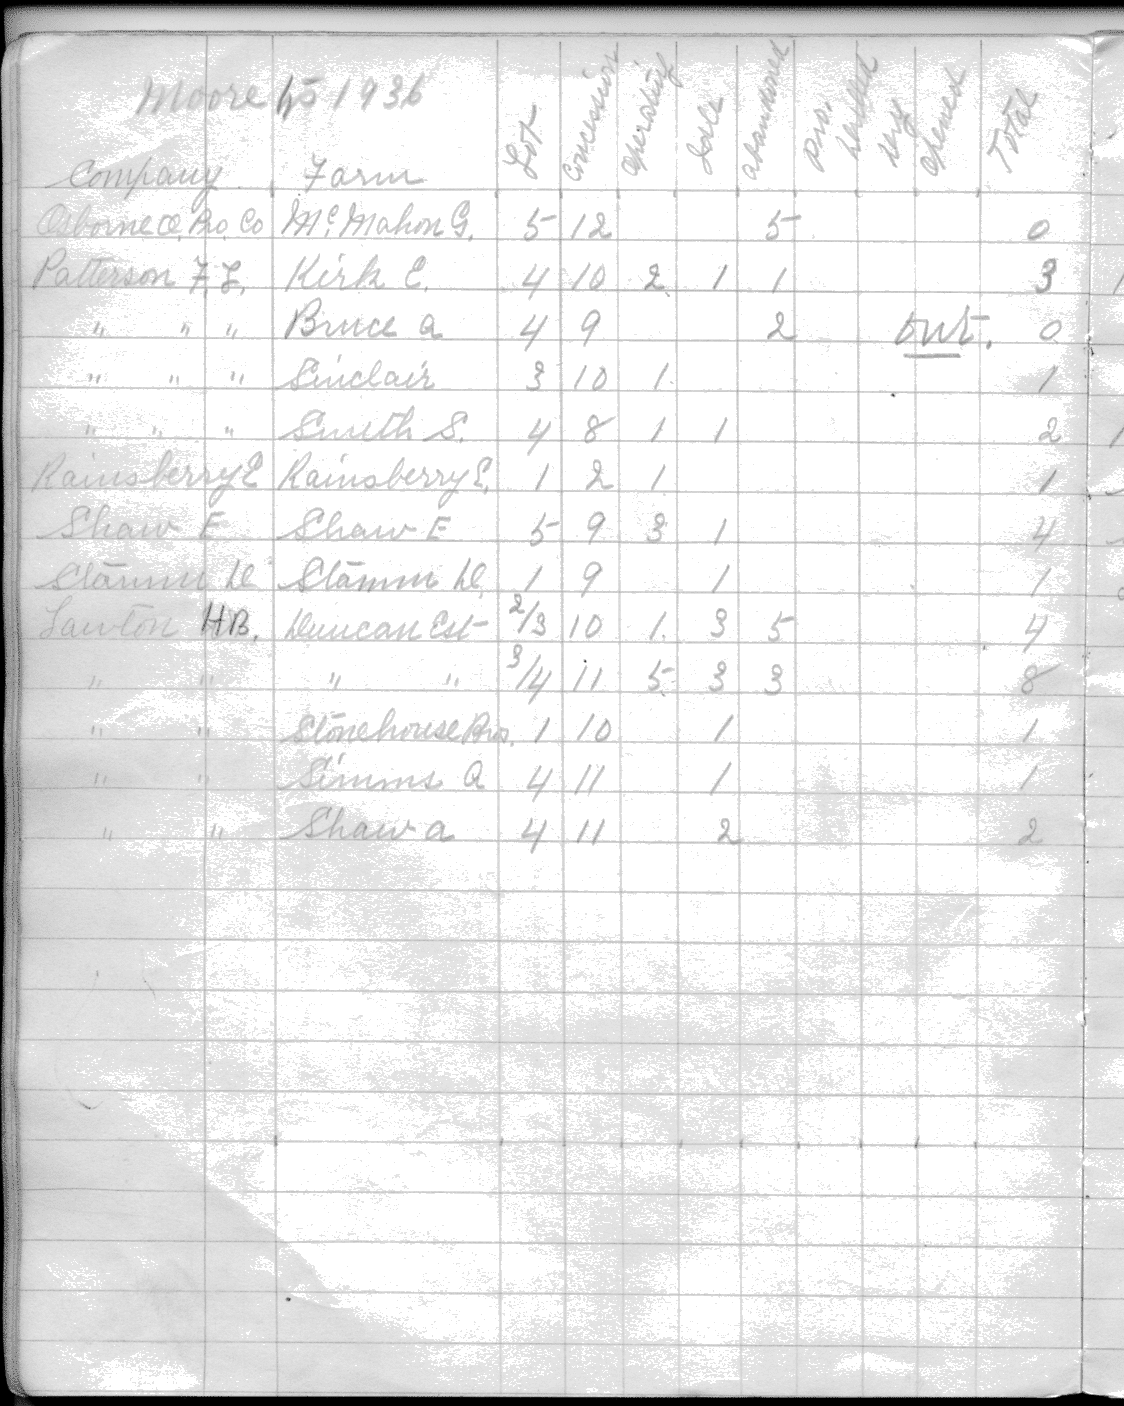 Moore 1936
Company Farm Lot Concession Operating Idle Abandoned Pro. Drilled Dry Opened Total
Osborne O. Pro. Co McMahon G. 5 12 5 0
Patterson F. L. Kirk E. 4 10 2 1 1 3
" " " Bruce A 4 9 2 out. 0
" " " Sinclair 3 10 1 1
" " " Smith S. 4 8 1 1 2
Rainsberry E Rainsberry E. 1 2 1 1
Shaw E Shaw E 5 9 3 1 4
Stamm D. Stamm D. 1 9 1 1
Lawton H.B. Duncan Est 2/3 10 1 3 5 4
" " " " 3/4 11 5 3 3 8
" " Stonehouse Bros. 1 10 1 1
" " Simms A 4 11 1 1
" " Shaw A 4 11 2 2